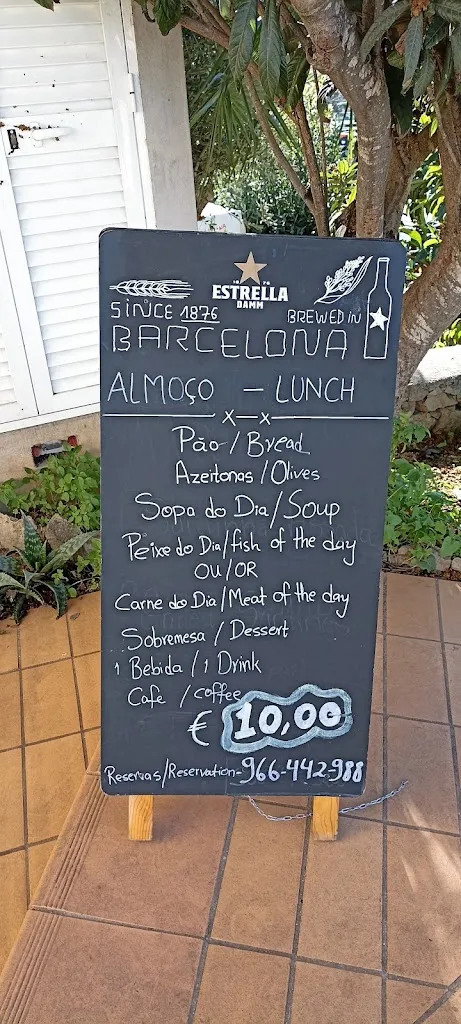 18 76
ESTRELLA
DAMM
SINCE 1876 BREWED IN
BARCELONA
ALMOÇO - LUNCH
X-X
Pão / Bread
Azeitonas / Olives
Sopa do Dia / Soup
Peixe do Dia / fish of the day
OU / OR
Carne do Dia / Meat of the day
Sobremesa / Dessert
1 Bebida / 1 Drink
Cafe / coffee
€ 10,00
Reservas / Reservation - 966-442-988